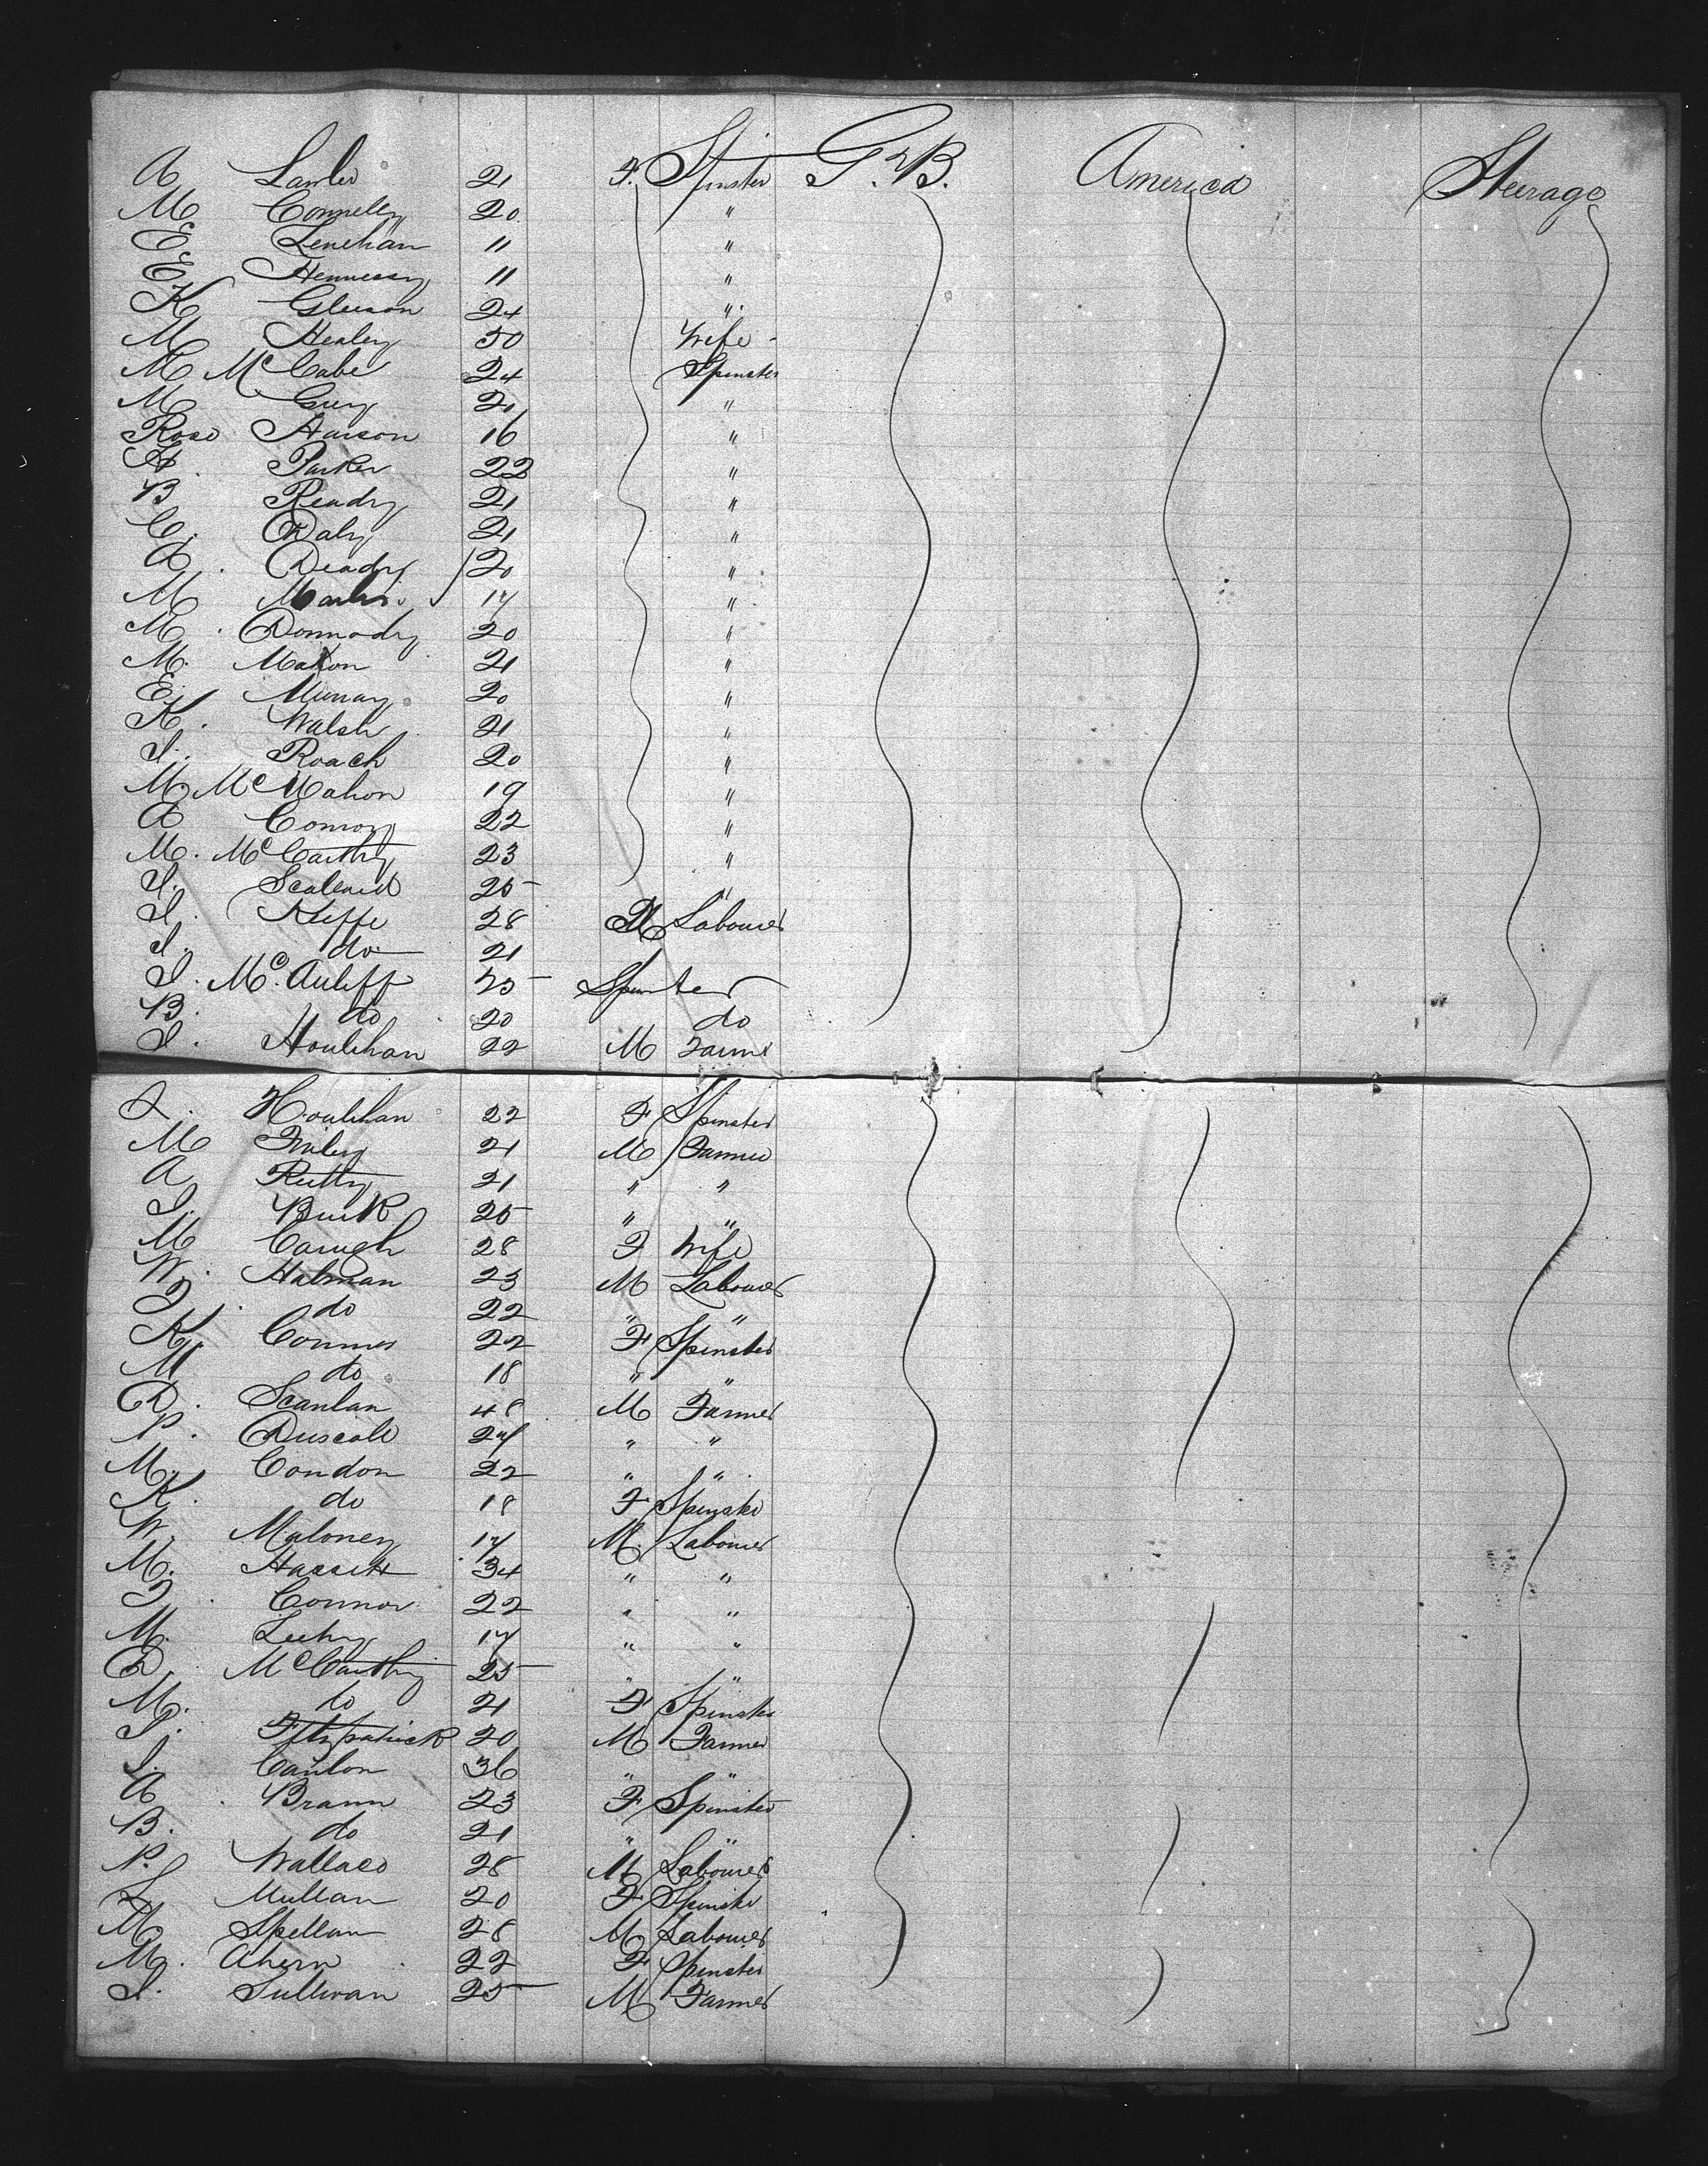 A Lawler 21 F. Spinster G. B. America Steerage
M Connelly 20 "
E. Lenehan 11 "
E. Hennessy 11 "
K Gleeson 24 "
M Healey 50 Wife
M McCabe 24 Spinster
M 21 "
Rose Hanson 16 "
A. Parker 22 "
B Ready 21 "
C. Daly 21 "
A. Deady 20 "
M 17 "
M. 20 "
M. Mahon 21 "
E. Murray 20 "
K. Walsh 21 "
J. Roach 20 "
M McMahon 19 "
A Conroy 22 "
M. McCarthy 23 "
J. 25 "
J. Keiffe 28 M Labourer
J. do 21
J. McAuliff 25 Spinster
B. do 20 do
J. Houlihan 22 M Farmr
J. Houlihan 22 F Spinster
M 21 M Farmer
A Rutty 21 " "
J. Burk 25 " "
M 28 F Wife
W. Halman 23 M Labourer
J. do 22 " "
K. Connors 22 F Spinster
M do 18 " "
D. Scanlan 48 M Farmer
P. Driscoll 24 " "
M. Condon 22 " "
K. do 18 F Spinster
W. Maloney 17 M. Labourer
M. Hassett 34 " "
J. Connor 22 " "
M. Leehy 17 " "
D. McCarthy 25 " "
M. do 21 F Spinster
J. Fitzpatrick 20 M Farmer
J. Canlon 36 " "
A. Brann 23 F Spinster
B. do 21 " "
P. Wallace 28 M Labourer
L Mullan 20 F Spinster
M. Spellam 28 M Labourer
M. Ahern 22 F Spinster
J. Sullivan 25 M Farmer